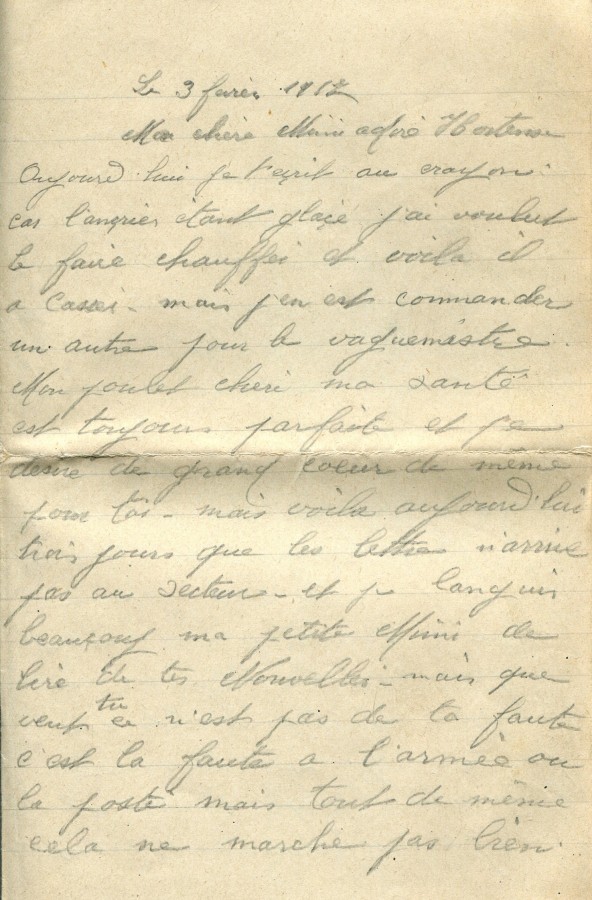 Le 3 fevrier 1917
Mon chère Mimi adoré Hortense
Aujourd'hui je t'ecrit au crayon.
car l'ancrier étant glaçé j'ai voulut
le faire chauffer et voila il
a Casser - mais j'en est commander
un autre pour le vaguemestre.
Mon poulet cheri ma santé
est toujours parfaite et je
desire de grand coeur de même
pour toi - mais voila aujourd'hui
trois jours que les lettres n'arrive
pas au secteur - et je languis
beauçoup ma petite Mimi de
lire de tes Nouvelles - mais que
veut tu ce n'est pas de ta faute
c'est la faute a l'armée ou
la poste mais tout de même
cela ne marche pas bien.